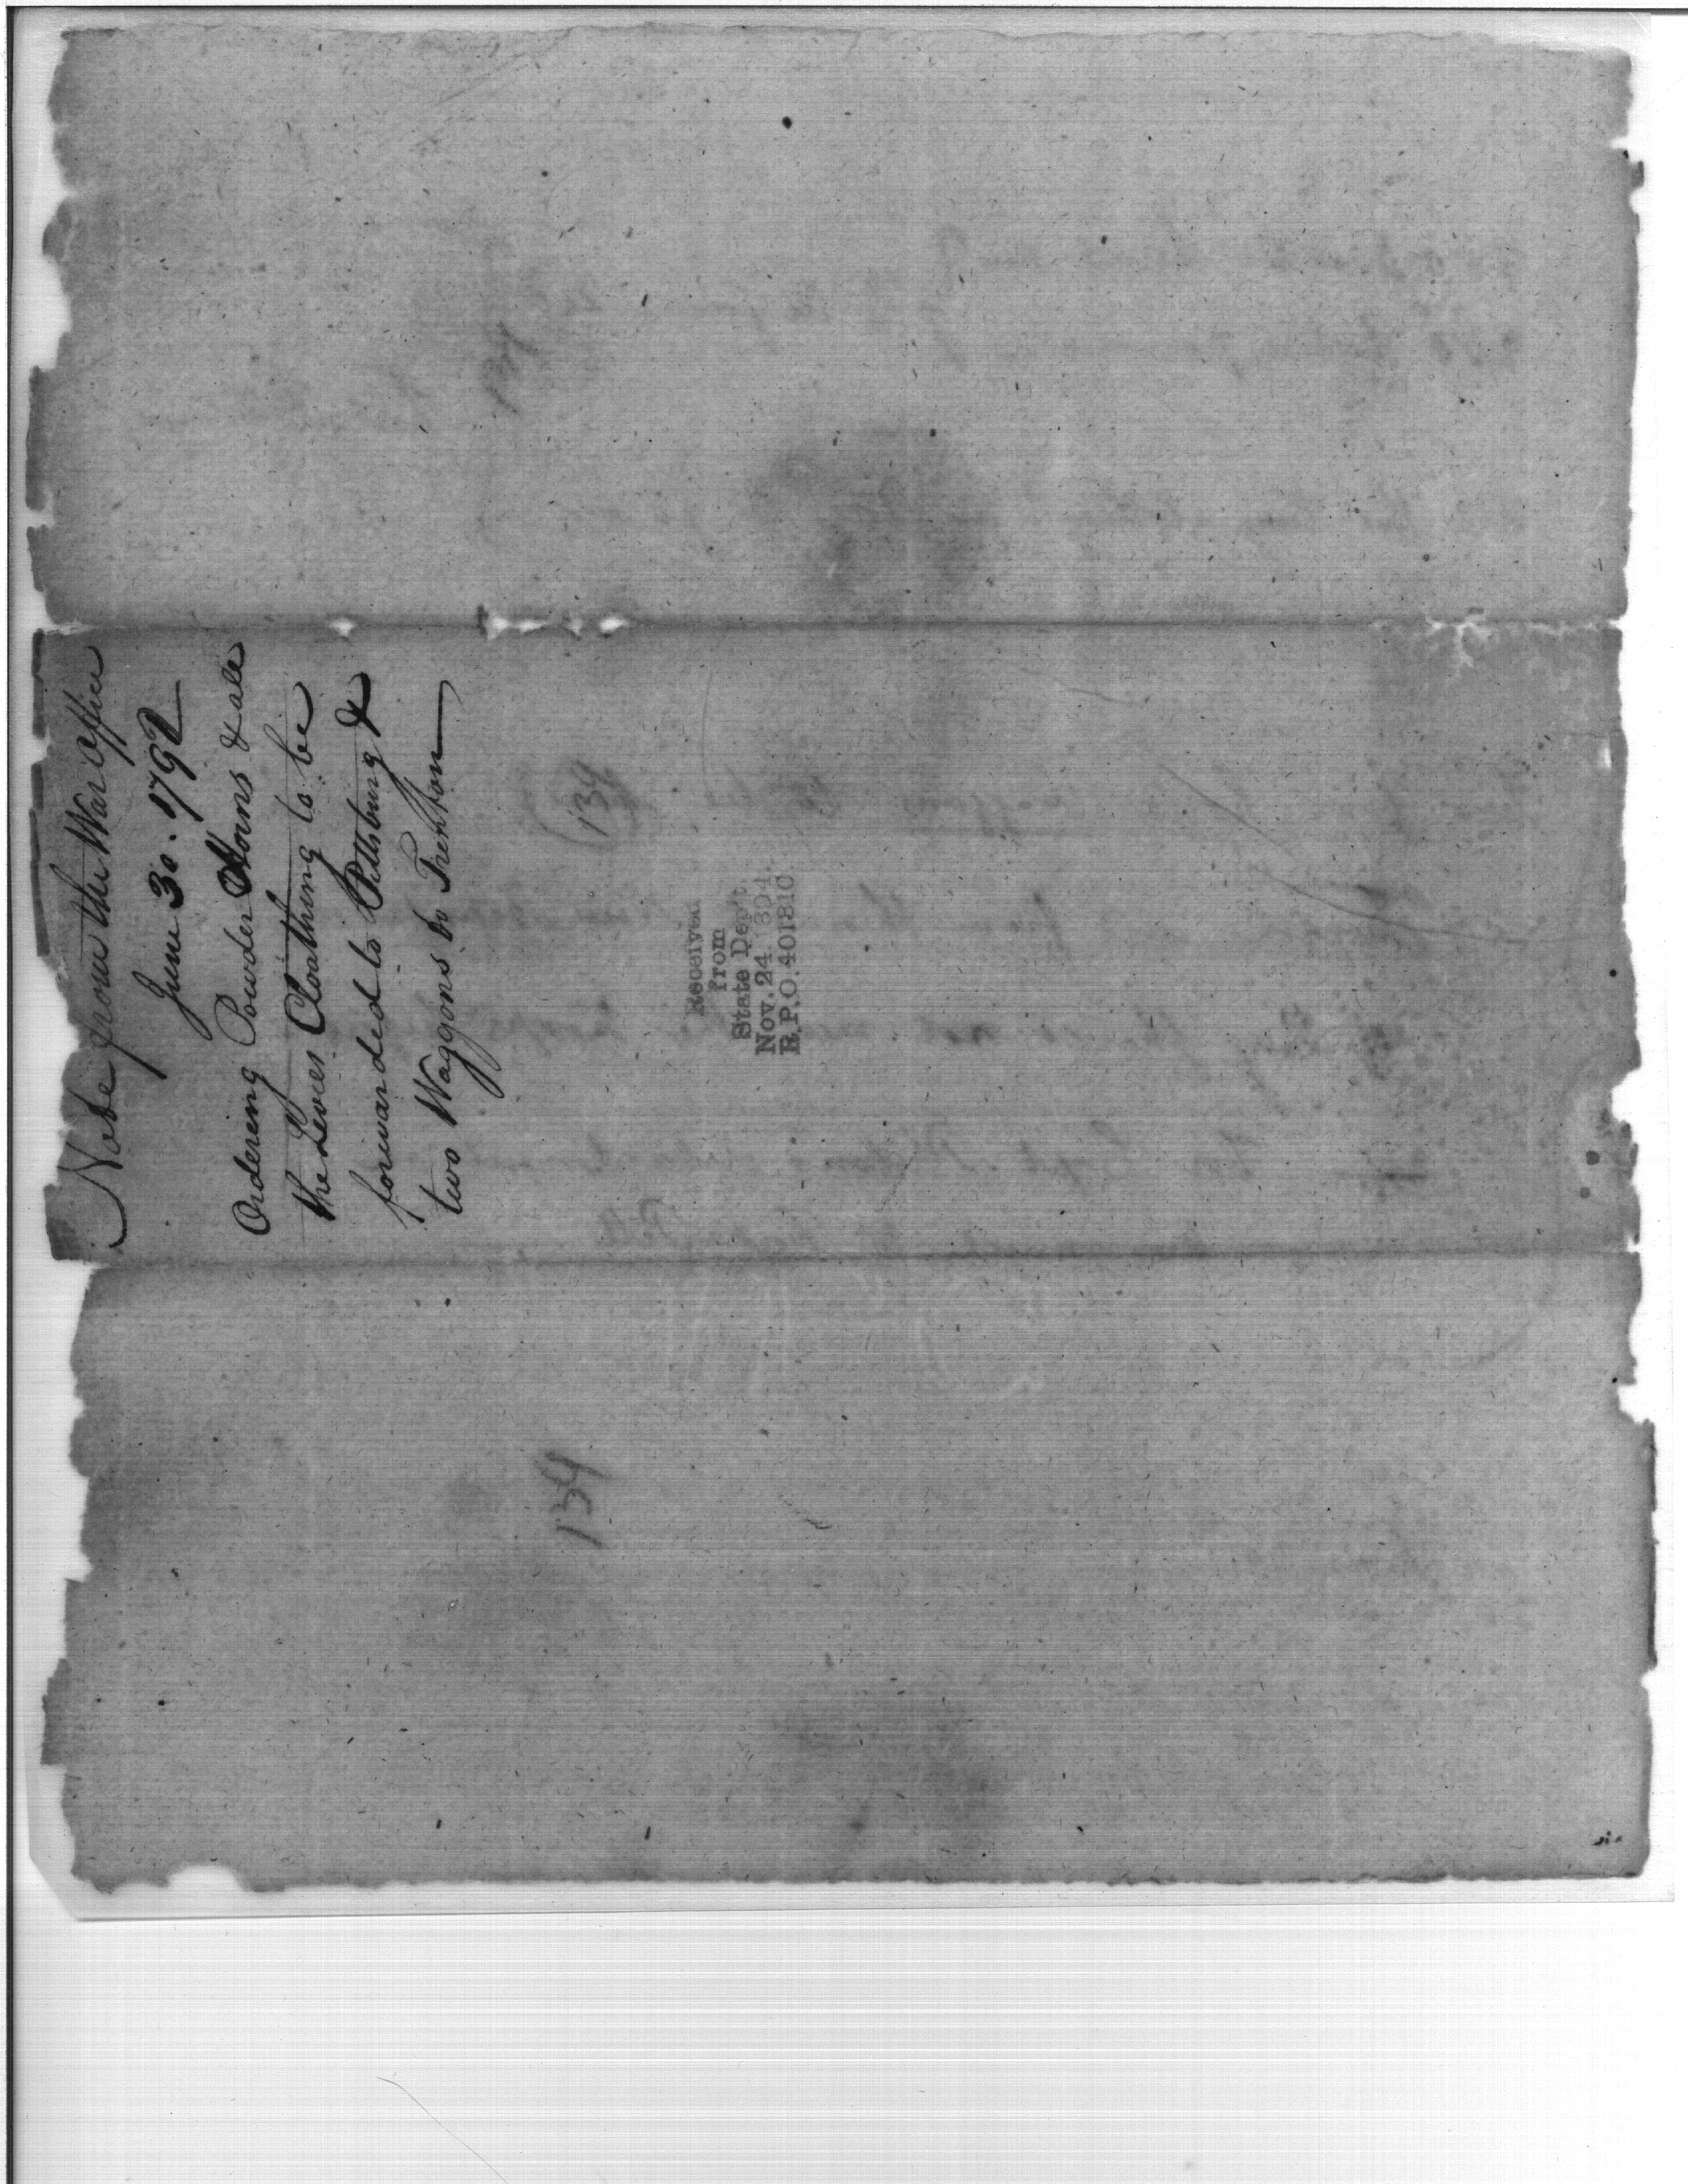 Note from the War Office
June 30. 1792
Ordering Powder Horns & all
the Levies Cloathing to be
forwarded to Pittsburg &
two Waggons to Trenton
(134)
Received
from
State Dep't.
Nov. 24
R.P.O. 401810
134
134